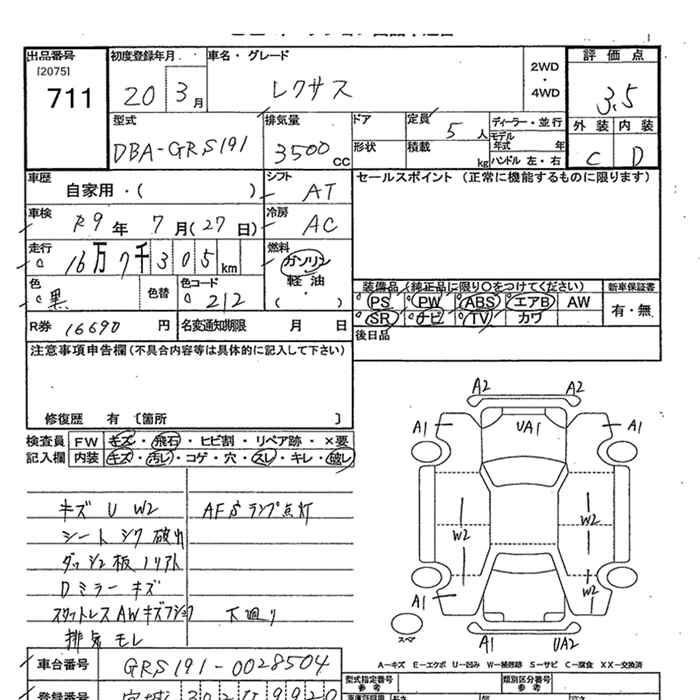 出品番号 初度登録年月 車名・グレード 2WD・4WD 評価点
[2075]
711 20 3月 レクサス 3.5
型式 排気量 ドア 定員 5人 ディーラー・並行 外装 内装
DBA-GRS191 3500cc 形状 積載 kg モデル年式 年 ハンドル 左・右 C D
車歴 シフト セールスポイント (正常に機能するものに限ります)
自家用・( ) AT
車検 R9年 7月(27日) 冷房 AC
走行 16万7千305km 燃料 ガソリン
軽油
・
( )
色 黒 色替 色コード 212
装備品(純正品に限り○をつけてください) 新車保証書
PS PW ABS エアB AW 有・無
SR ナビ TV カワ
R券 16690円 名変通知期限 月 日 後日品
注意事項申告欄(不具合内容等は具体的に記入して下さい)
修復歴 有 [箇所 ]
検査員 FW キズ・飛石・ヒビ割・リペア跡・×要
記入欄 内装 キズ・汚レ・コゲ・穴・スレ・キレ・破レ
キズ U W2 AFSランプ点灯
シート シワ 破れ
ダッシュ板ノリアト
Dミラー キズ
スタットレスAWキズ 下廻り
排気モレ
A2 A2
A1 UA1 A1
W2 W2
W2
A1 A1
スペア
A1 UA2
A-キズ E-エクボ U-凹み W-補修跡 S-サビ C-腐食 XX-交換済
車台番号 GRS191-0028504
型式指定番号 参考 類別区分番号 参考
登録番号 宮城 302